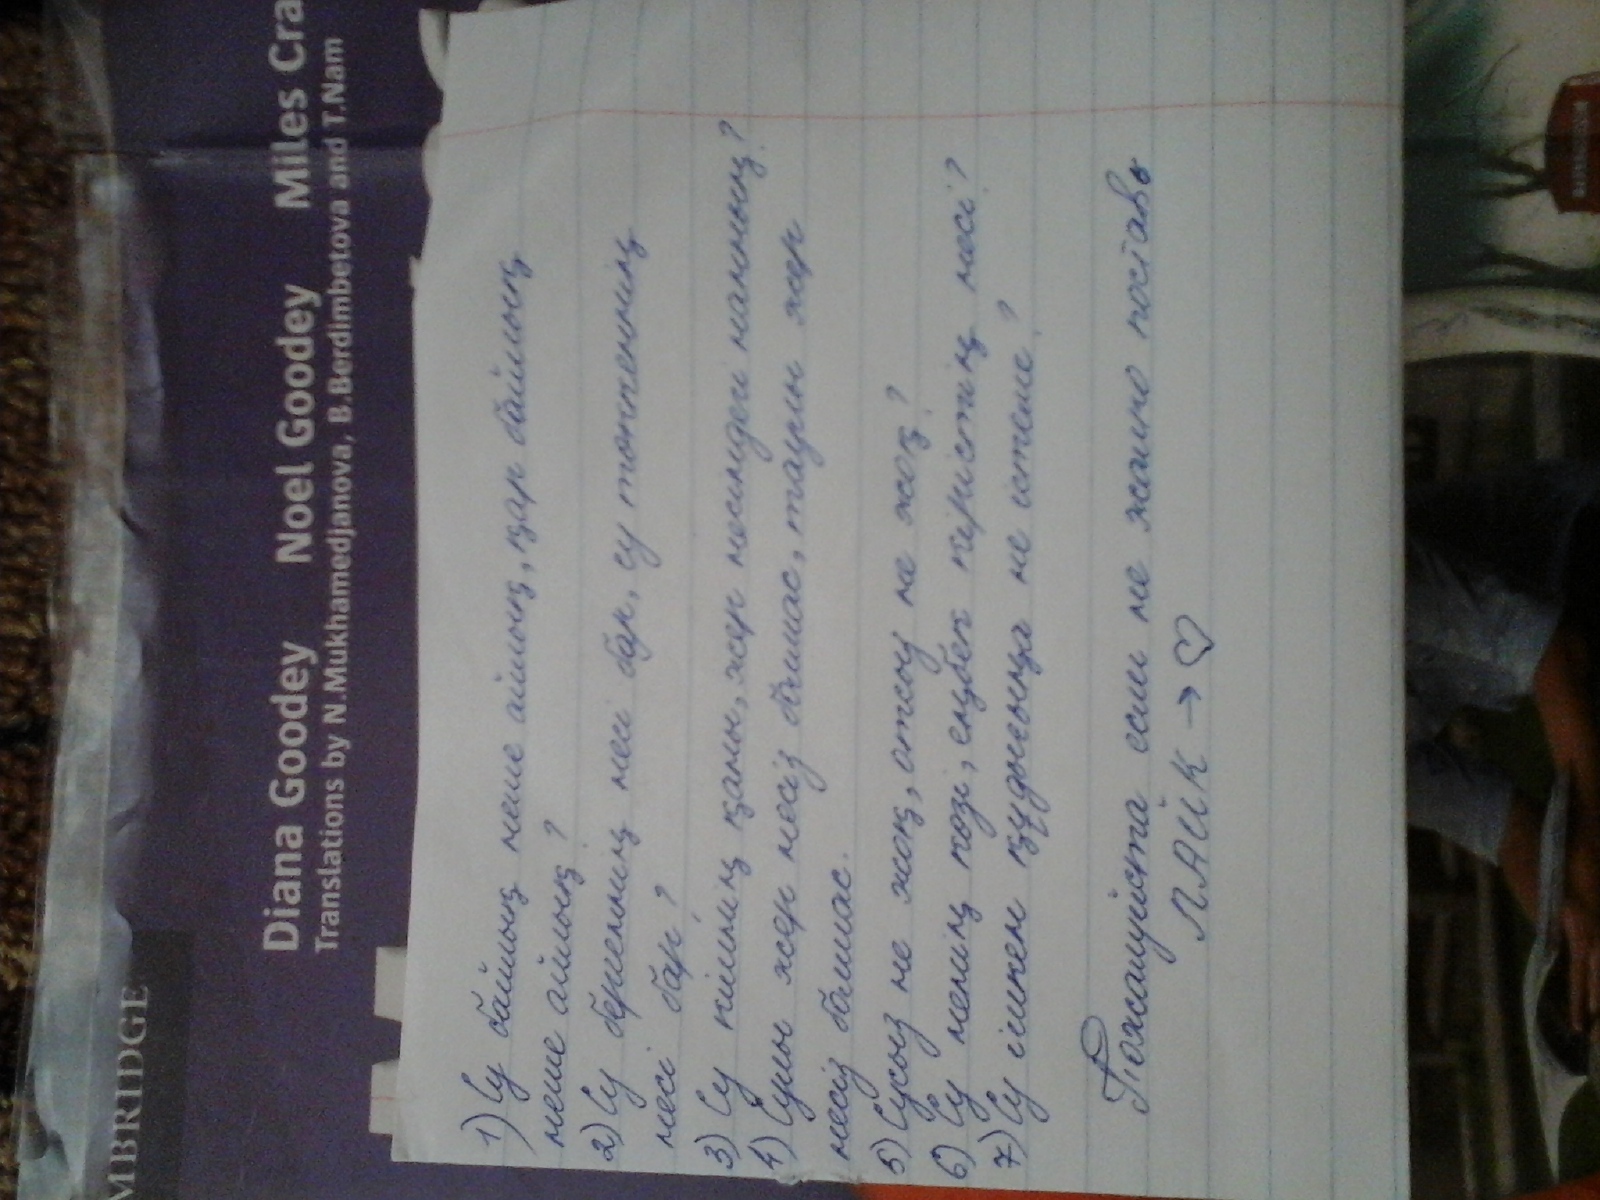 MBRIDGE
Diana Goodey Noel Goodey Miles Cra
Translations by N.Mukhamedjanova, B.Berdimbetova and T.Nam
1) Су байлық неше айлық, қар байлық
неше айлық?
2) Су бергеннің несі бар, су төккеннің
несі бар?
3) Су кілінің қаны, жер несіндегі нанның?
4) Сулы жер несіз болмас, таулы жер
несіз болмас.
5) Сусыз не жоқ, отсыз не жоқ?
6) Су ненің көзі, еңбек керістің несі?
7) Су ішкен құдығыңа не істеме?
Пожалуйста если не жалко поставь
ЛАЙК → ♡